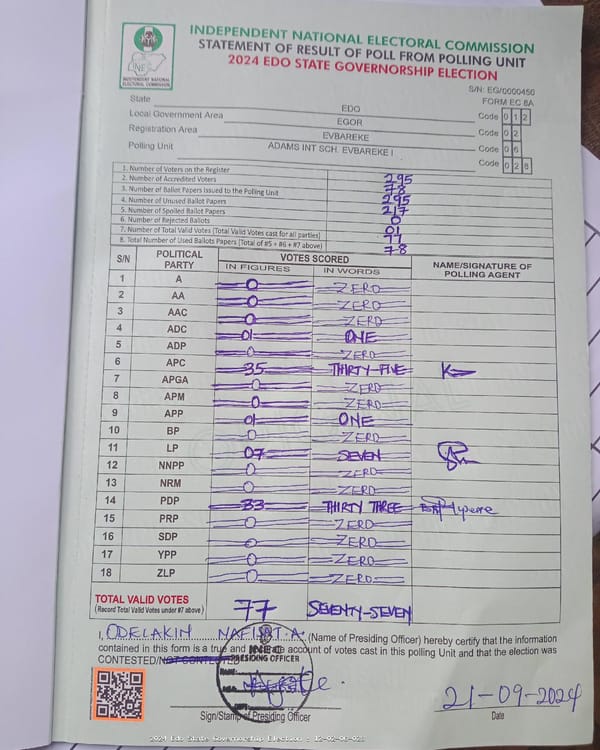 INDEPENDENT NATIONAL ELECTORAL COMMISSION
STATEMENT OF RESULT OF POLL FROM POLLING UNIT
2024 EDO STATE GOVERNORSHIP ELECTION
INDEPENDENT NATIONAL ELECTORAL COMMISSION
S/N: EG/0000450
FORM EC 8A
State EDO Code 0 1 2
Local Government Area EGOR Code 0 2
Registration Area EVBAREKE Code 0 6
Polling Unit ADAMS INT SCH. EVBAREKE I Code 0 2 8
1. Number of Voters on the Register 295
2. Number of Accredited Voters 78
3. Number of Ballot Papers Issued to the Polling Unit 295
4. Number of Unused Ballot Papers 217
5. Number of Spoiled Ballot Papers 0
6. Number of Rejected Ballots 01
7. Number of Total Valid Votes (Total Valid Votes cast for all parties) 77
8. Total Number of Used Ballots Papers (Total of #5 + #6 + #7 above) 78
S/N POLITICAL PARTY VOTES SCORED NAME/SIGNATURE OF POLLING AGENT
IN FIGURES IN WORDS
1 A 0 ZERO
2 AA 0 ZERO
3 AAC 0 ZERO
4 ADC 01 ONE
5 ADP 0 ZERO
6 APC 35 THIRTY-FIVE
7 APGA 0 ZERO
8 APM 0 ZERO
9 APP 01 ONE
10 BP 0 ZERO
11 LP 07 SEVEN
12 NNPP 0 ZERO
13 NRM 0 ZERO
14 PDP 33 THIRTY THREE
15 PRP 0 ZERO
16 SDP 0 ZERO
17 YPP 0 ZERO
18 ZLP 0 ZERO
TOTAL VALID VOTES 77 SEVENTY-SEVEN
(Record Total Valid Votes under #7 above)
I, ODELAKIN NAFISAT. A. (Name of Presiding Officer) hereby certify that the information
contained in this form is a true and account of votes cast in this polling Unit and that the election was
CONTESTED/NOT CONTESTED
INEC
PRESIDING OFFICER
21-09-2024
Sign/Stamp of Presiding Officer Date
2024 Edo State Governorship Election : 12-02-06-028